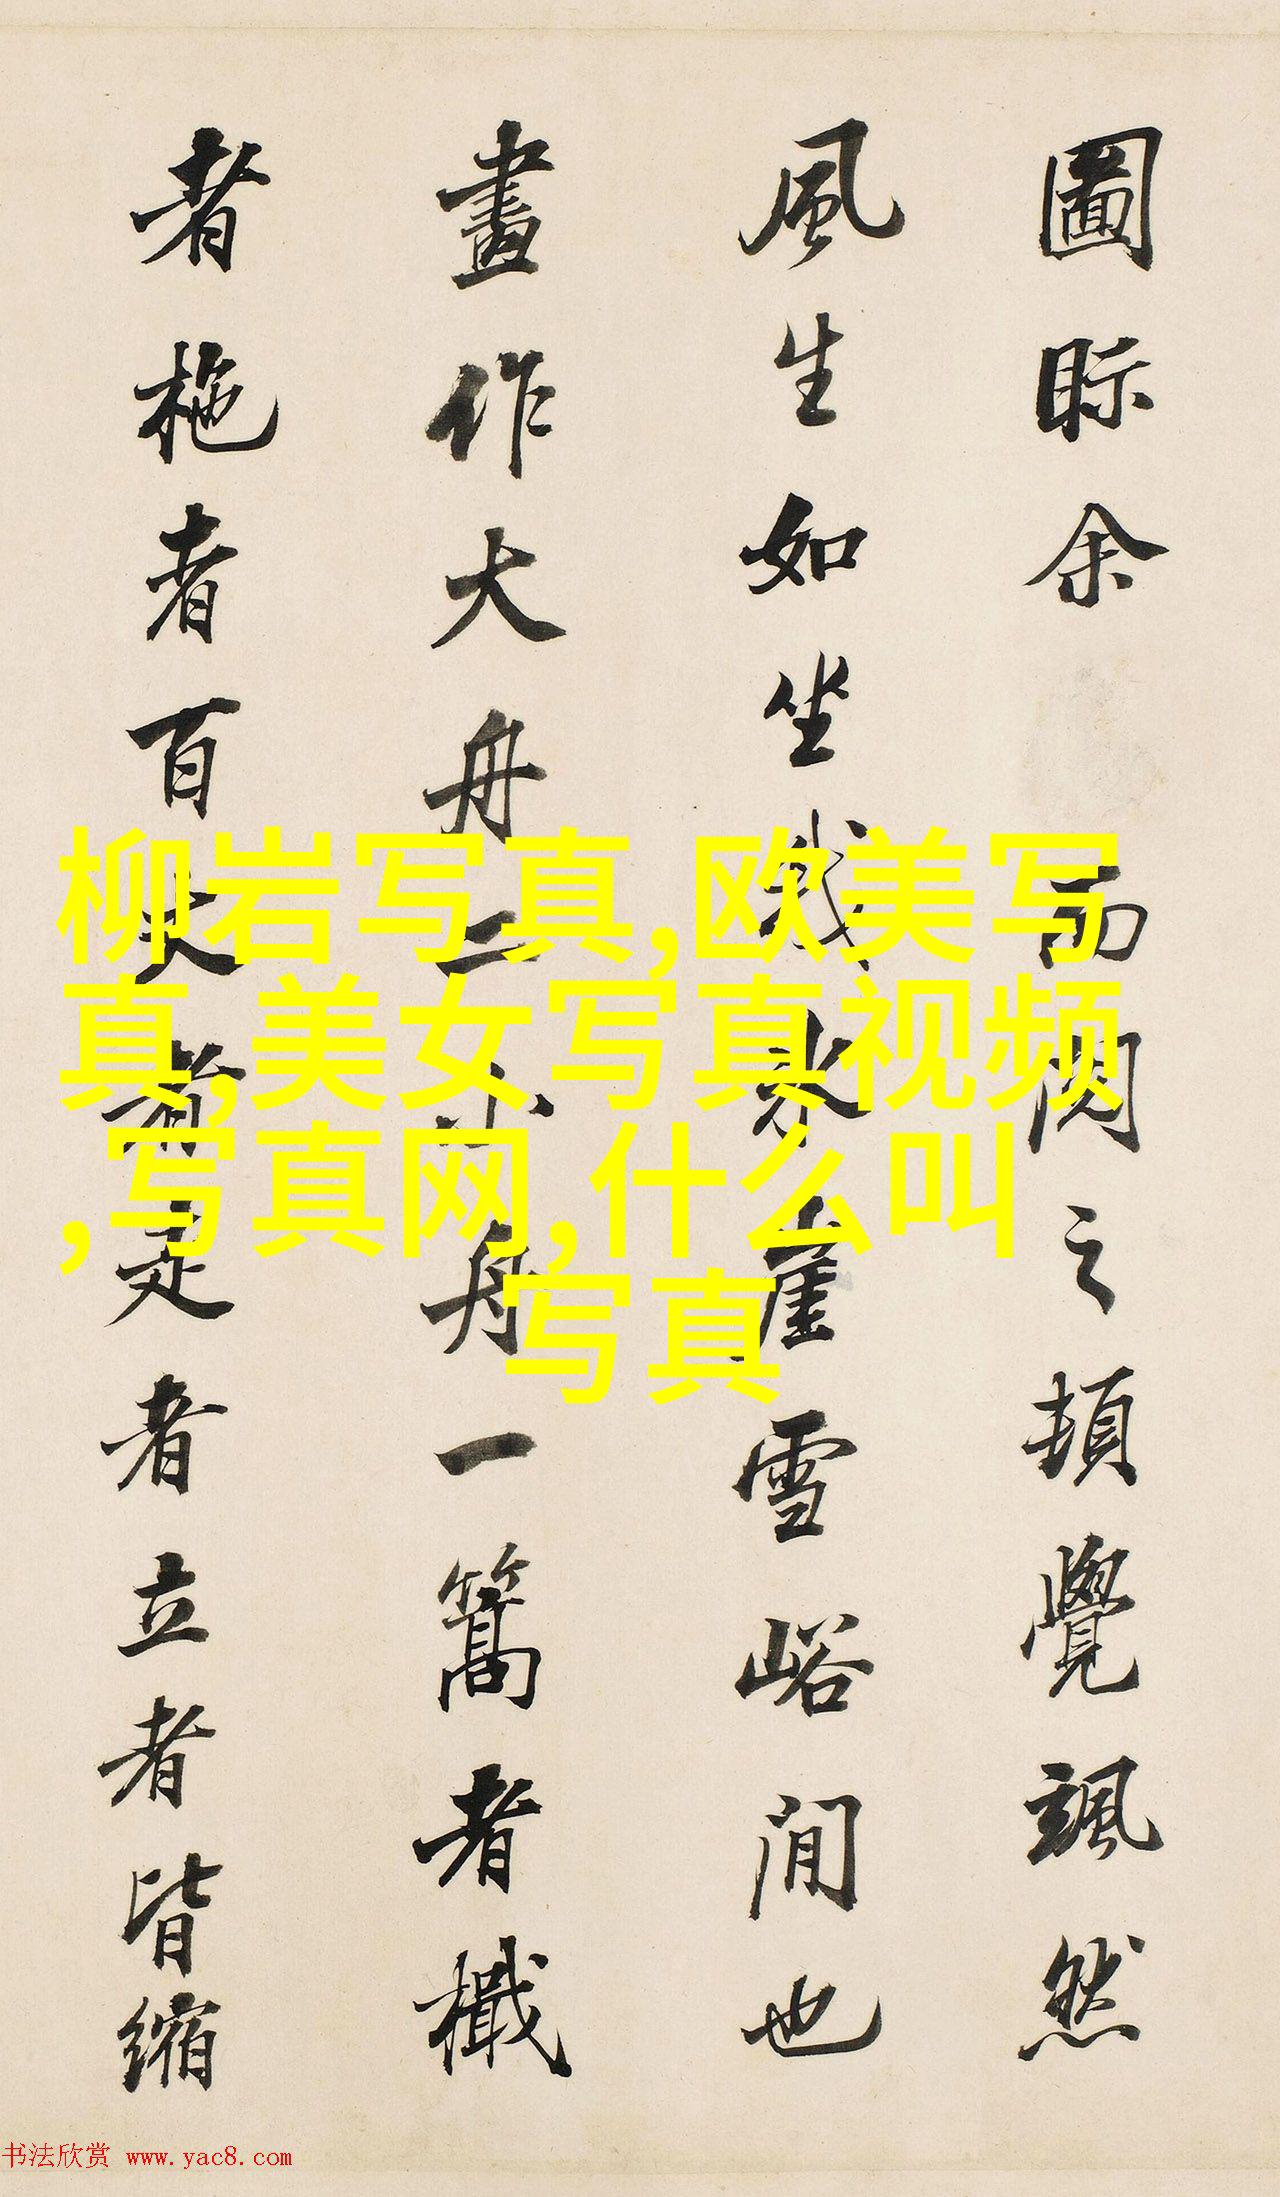 圖眎余而閱之頓覺颯然
風生如坐我氷崖雪峪間也
畫作大舟二小舟一篙者檝
者柂者百丈者走者立者皆縮
柳岩写真,欧美写
真,美女写真视频
,写真网,什么叫
写真
书法欣赏 www.yac8.com